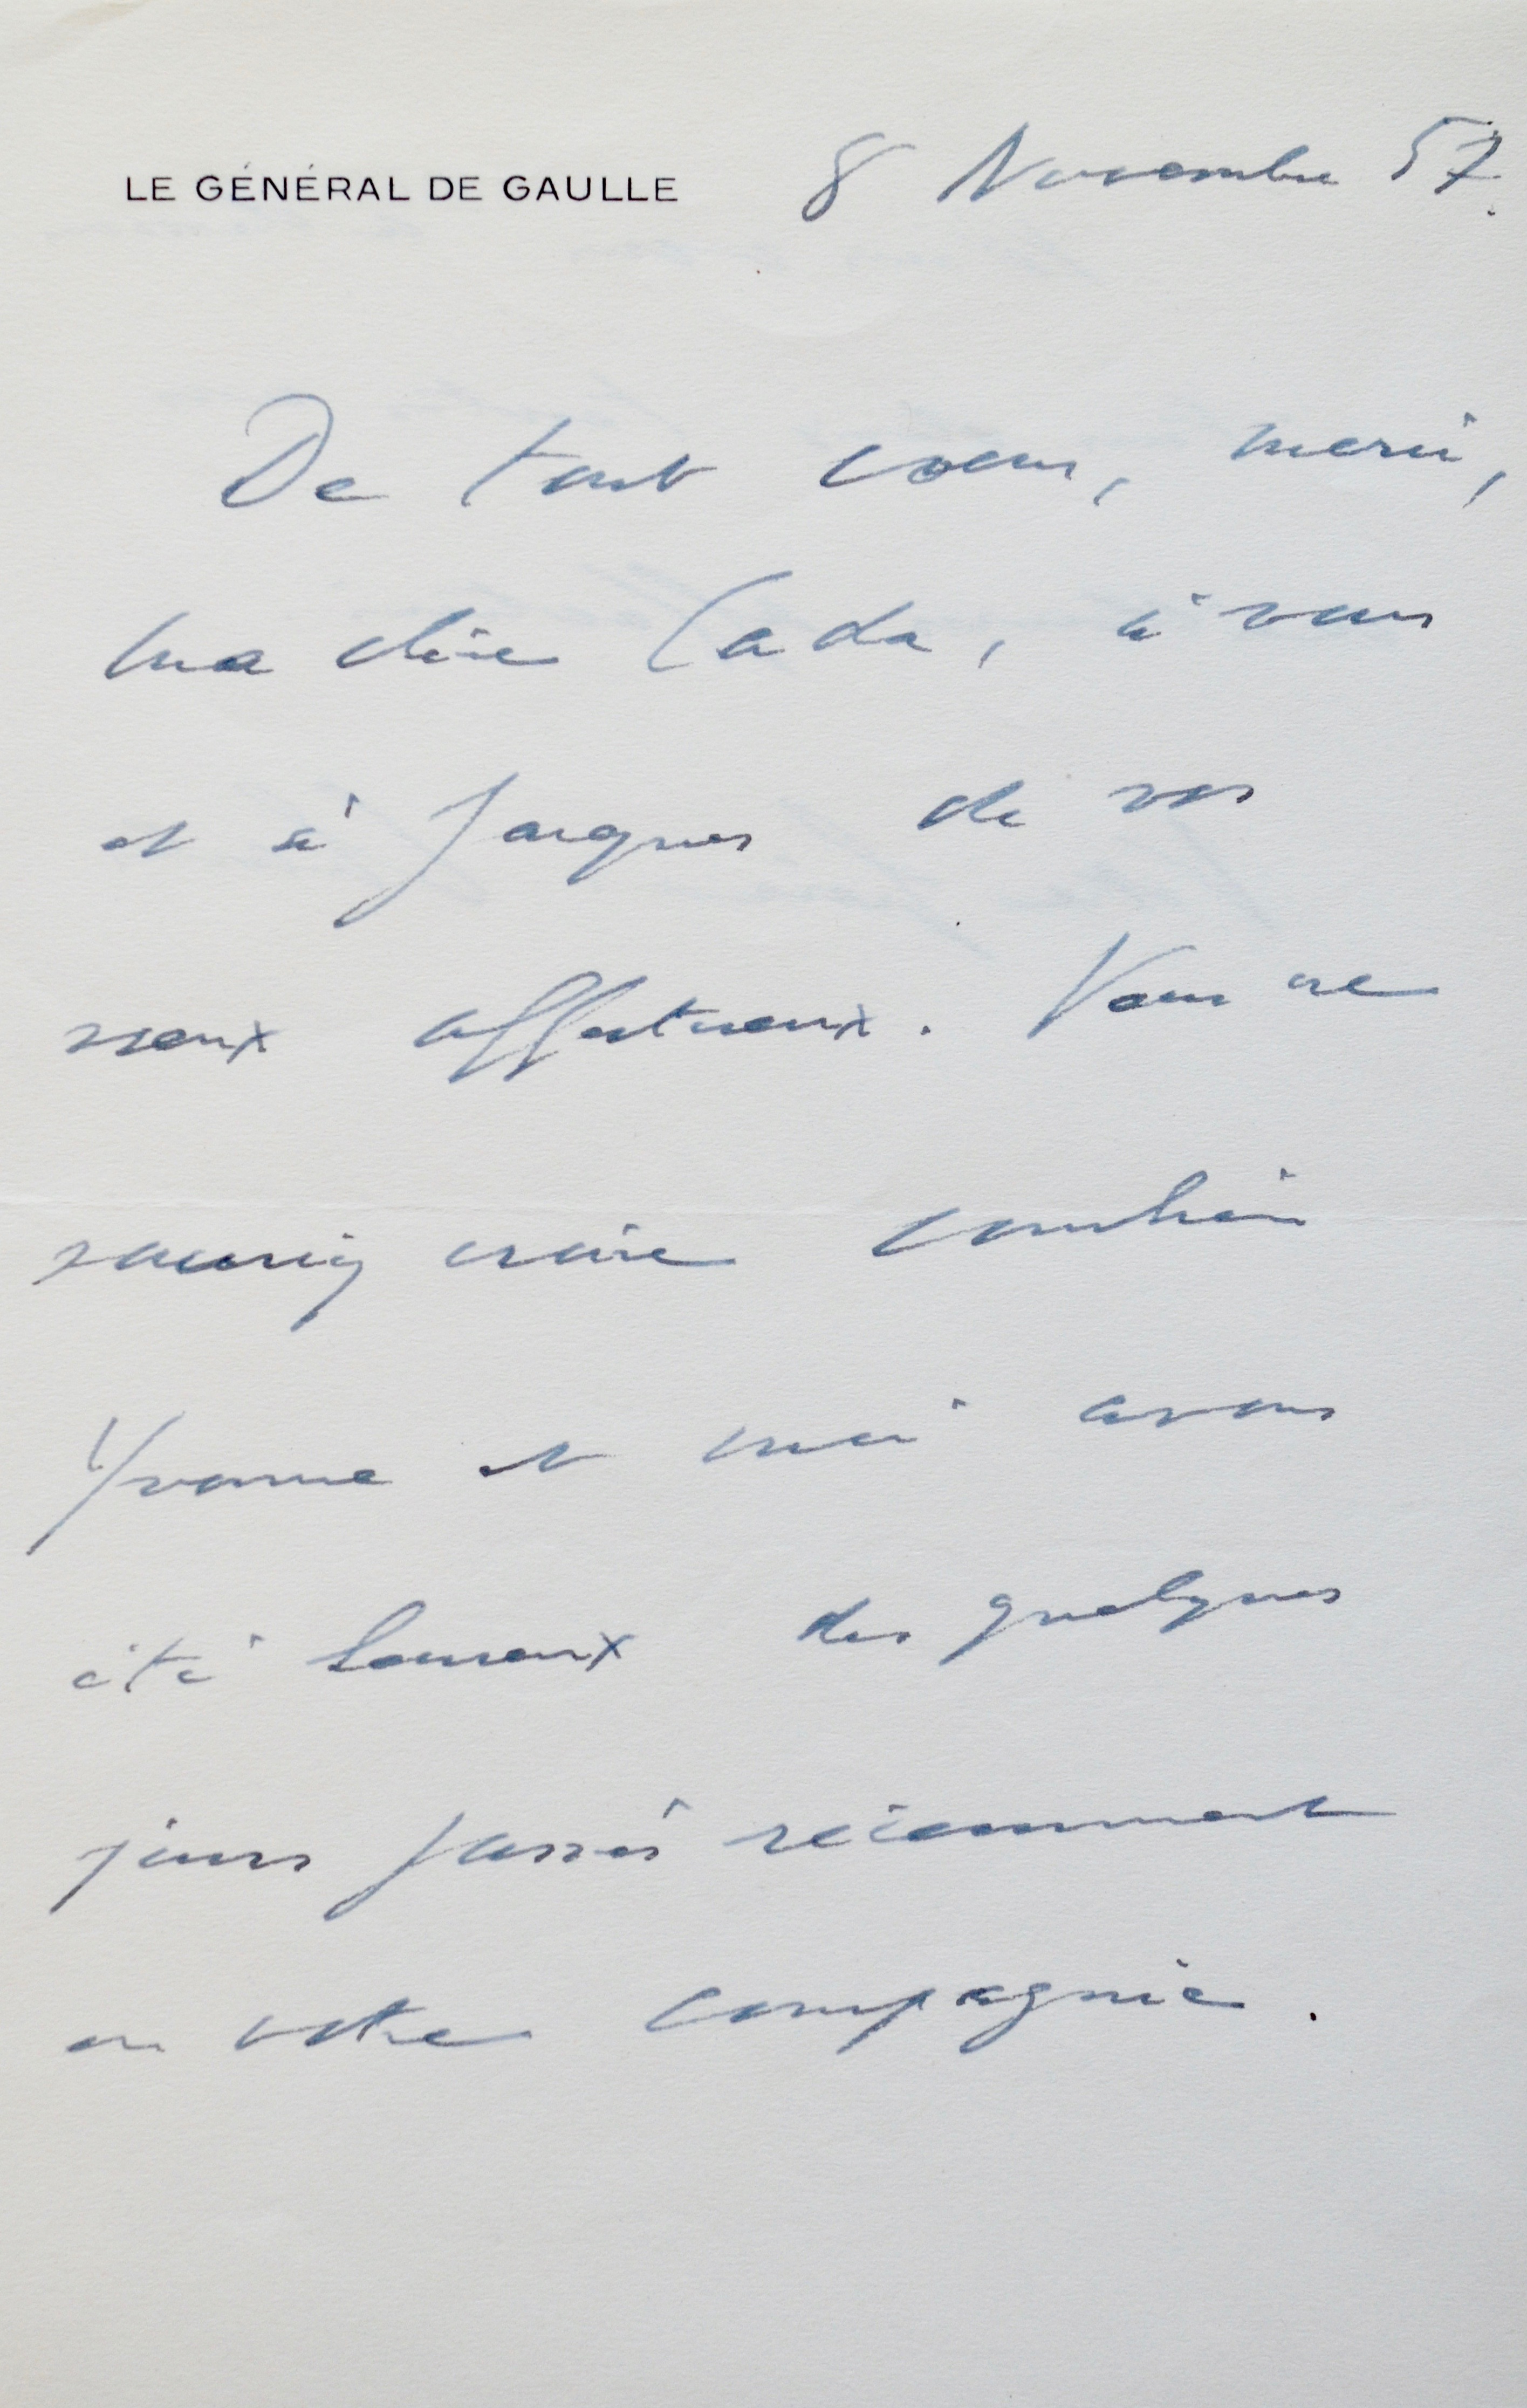 LE GÉNÉRAL DE GAULLE 8 Novembre 57.
De tout coeur, merci,
ma chère Cada, à vous
et à Jacques de vos
voeux affectueux. Vous ne
sauriez croire combien
Yvonne et moi avons
été heureux des quelques
jours passés récemment
en votre compagnie.